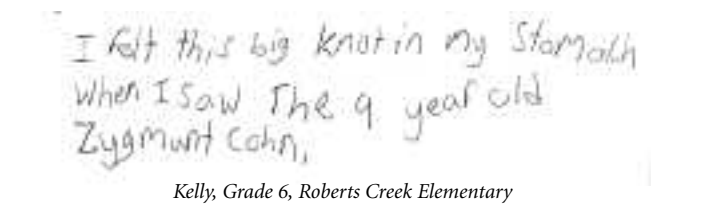 I felt this big knot in my Stomach
when I saw The 9 year old
Zygmunt Cohn,
Kelly, Grade 6, Roberts Creek Elementary